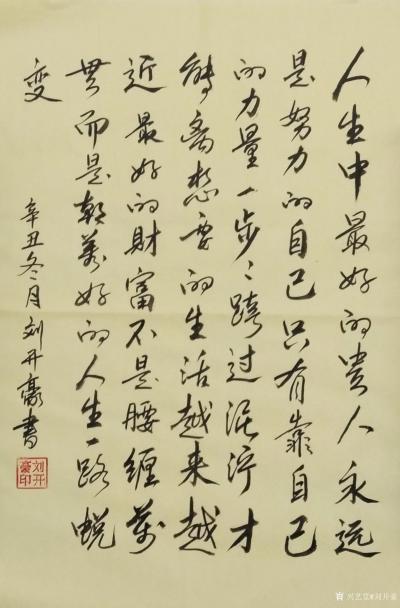 人生中最好的贵人永远
是努力的自己只有靠自己
的力量一步〻跨过泥泞才
能离想要的生活越来越
近最好的财富不是腰缠万
贯而是朝着好的人生一路蜕
变
辛丑冬月刘开豪书
刘开豪印
兴艺堂@刘开豪